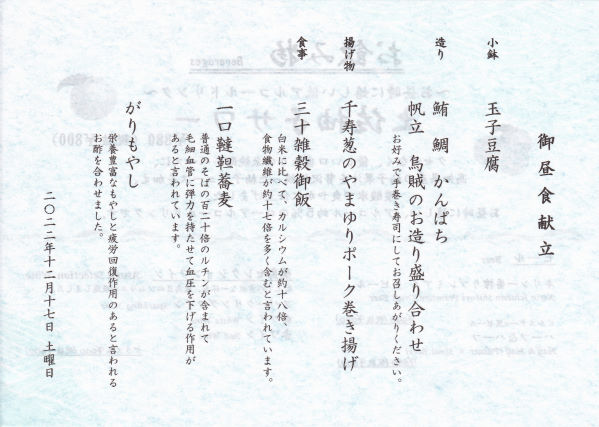 御昼食献立
小鉢
玉子豆腐
造り
鮪 鯛 かんぱち
帆立 烏賊のお造り盛り合わせ
お好みで手巻き寿司にしてお召しあがりください。
揚げ物
千寿葱のやまゆりポーク巻き揚げ
食事
三十雑穀御飯
白米に比べて、カルシウムが約十八倍、
食物繊維が約十七倍を多く含むと言われています。
一口韃靼蕎麦
普通のそばの百二十倍のルチンが含まれて
毛細血管に弾力を持たせて血圧を下げる作用が
あると言われています。
がりもやし
栄養豊富なもやしと疲労回復作用のあると言われる
お酢を合わせました。
二〇二二年十二月十七日 土曜日